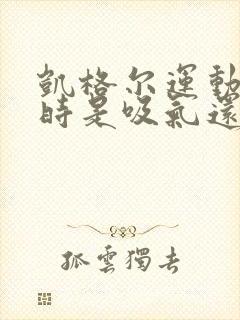 凱格尔運動
時是吸氣還
孤雲獨去